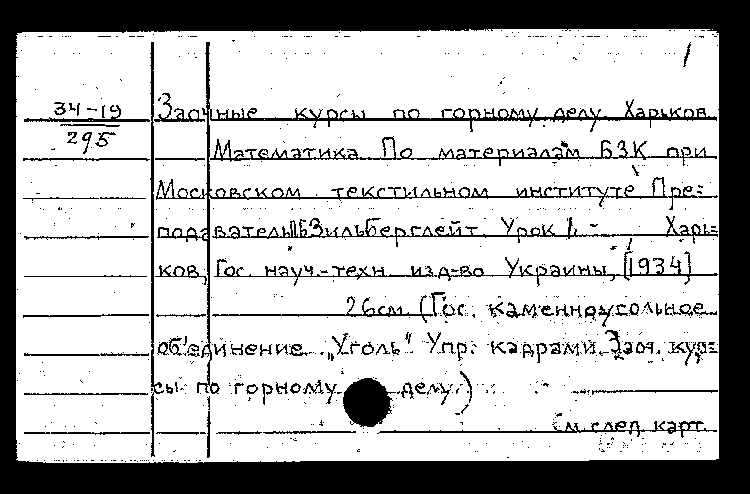 1
34-19 Заочные курсы по горному делу. Харьков.
295
Математика. По материалам БЗК при
Московском текстильном институте. Пре=
подаватель Зильберглейт. Урок 1. - Харь=
ков, Гос. науч.-техн. изд-во Украины, [1934]
26см. (Гос. каменноугольное
об'единение "Уголь" Упр. кадрами. Заоч. кур=
сы по горному делу.)
См. след. карт.